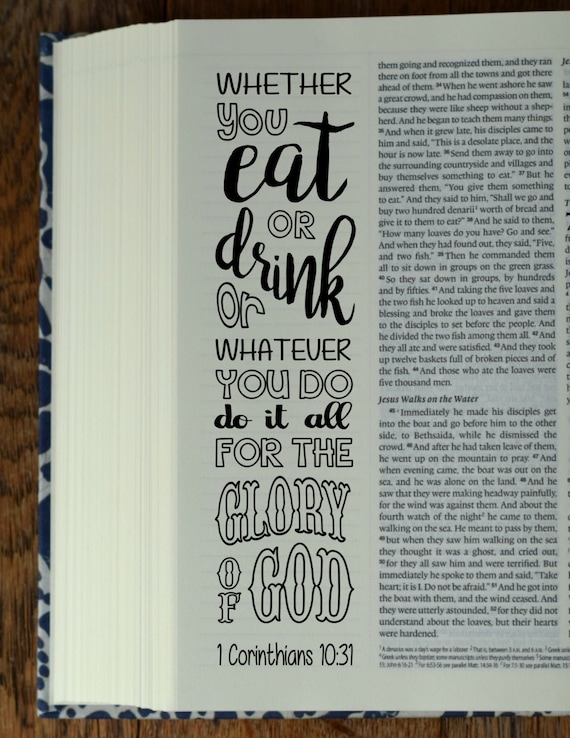 WHETHER
YOU
eat
OR
drink
or
WHATEVER
YOU DO
do it all
FOR THE
GLORY
OF GOD
1 Corinthians 10:31
them going and recognized them, and they ran
there on foot from all the towns and got there
ahead of them. 34 When he went ashore he saw
a great crowd, and he had compassion on them,
because they were like sheep without a shep-
herd. And he began to teach them many things.
35 And when it grew late, his disciples came to
him and said, “This is a desolate place, and the
hour is now late. 36 Send them away to go into
the surrounding countryside and villages and
buy themselves something to eat.” 37 But he
answered them, “You give them something
to eat.” And they said to him, “Shall we go and
buy two hundred denarii¹ worth of bread and
give it to them to eat?” 38 And he said to them,
“How many loaves do you have? Go and see.”
And when they had found out, they said, “Five,
and two fish.” 39 Then he commanded them
all to sit down in groups on the green grass.
40 So they sat down in groups, by hundreds
and by fifties. 41 And taking the five loaves and
the two fish he looked up to heaven and said a
blessing and broke the loaves and gave them
to the disciples to set before the people. And
he divided the two fish among them all. 42 And
they all ate and were satisfied. 43 And they took
up twelve baskets full of broken pieces and of
the fish. 44 And those who ate the loaves were
five thousand men.
Jesus Walks on the Water
45 Immediately he made his disciples get
into the boat and go before him to the other
side, to Bethsaida, while he dismissed the
crowd. 46 And after he had taken leave of them,
he went up on the mountain to pray. 47 And
when evening came, the boat was out on the
sea, and he was alone on the land. 48 And he
saw that they were making headway painfully,
for the wind was against them. And about the
fourth watch of the night² he came to them,
walking on the sea. He meant to pass by them,
49 but when they saw him walking on the sea
they thought it was a ghost, and cried out,
50 for they all saw him and were terrified. But
immediately he spoke to them and said, “Take
heart; it is I. Do not be afraid.” 51 And he got into
the boat with them, and the wind ceased. And
they were utterly astounded, 52 for they did not
understand about the loaves, but their hearts
were hardened.
¹ A denarius was a day's wage for a laborer ² That is, between 3 A.M. and 6 A.M.